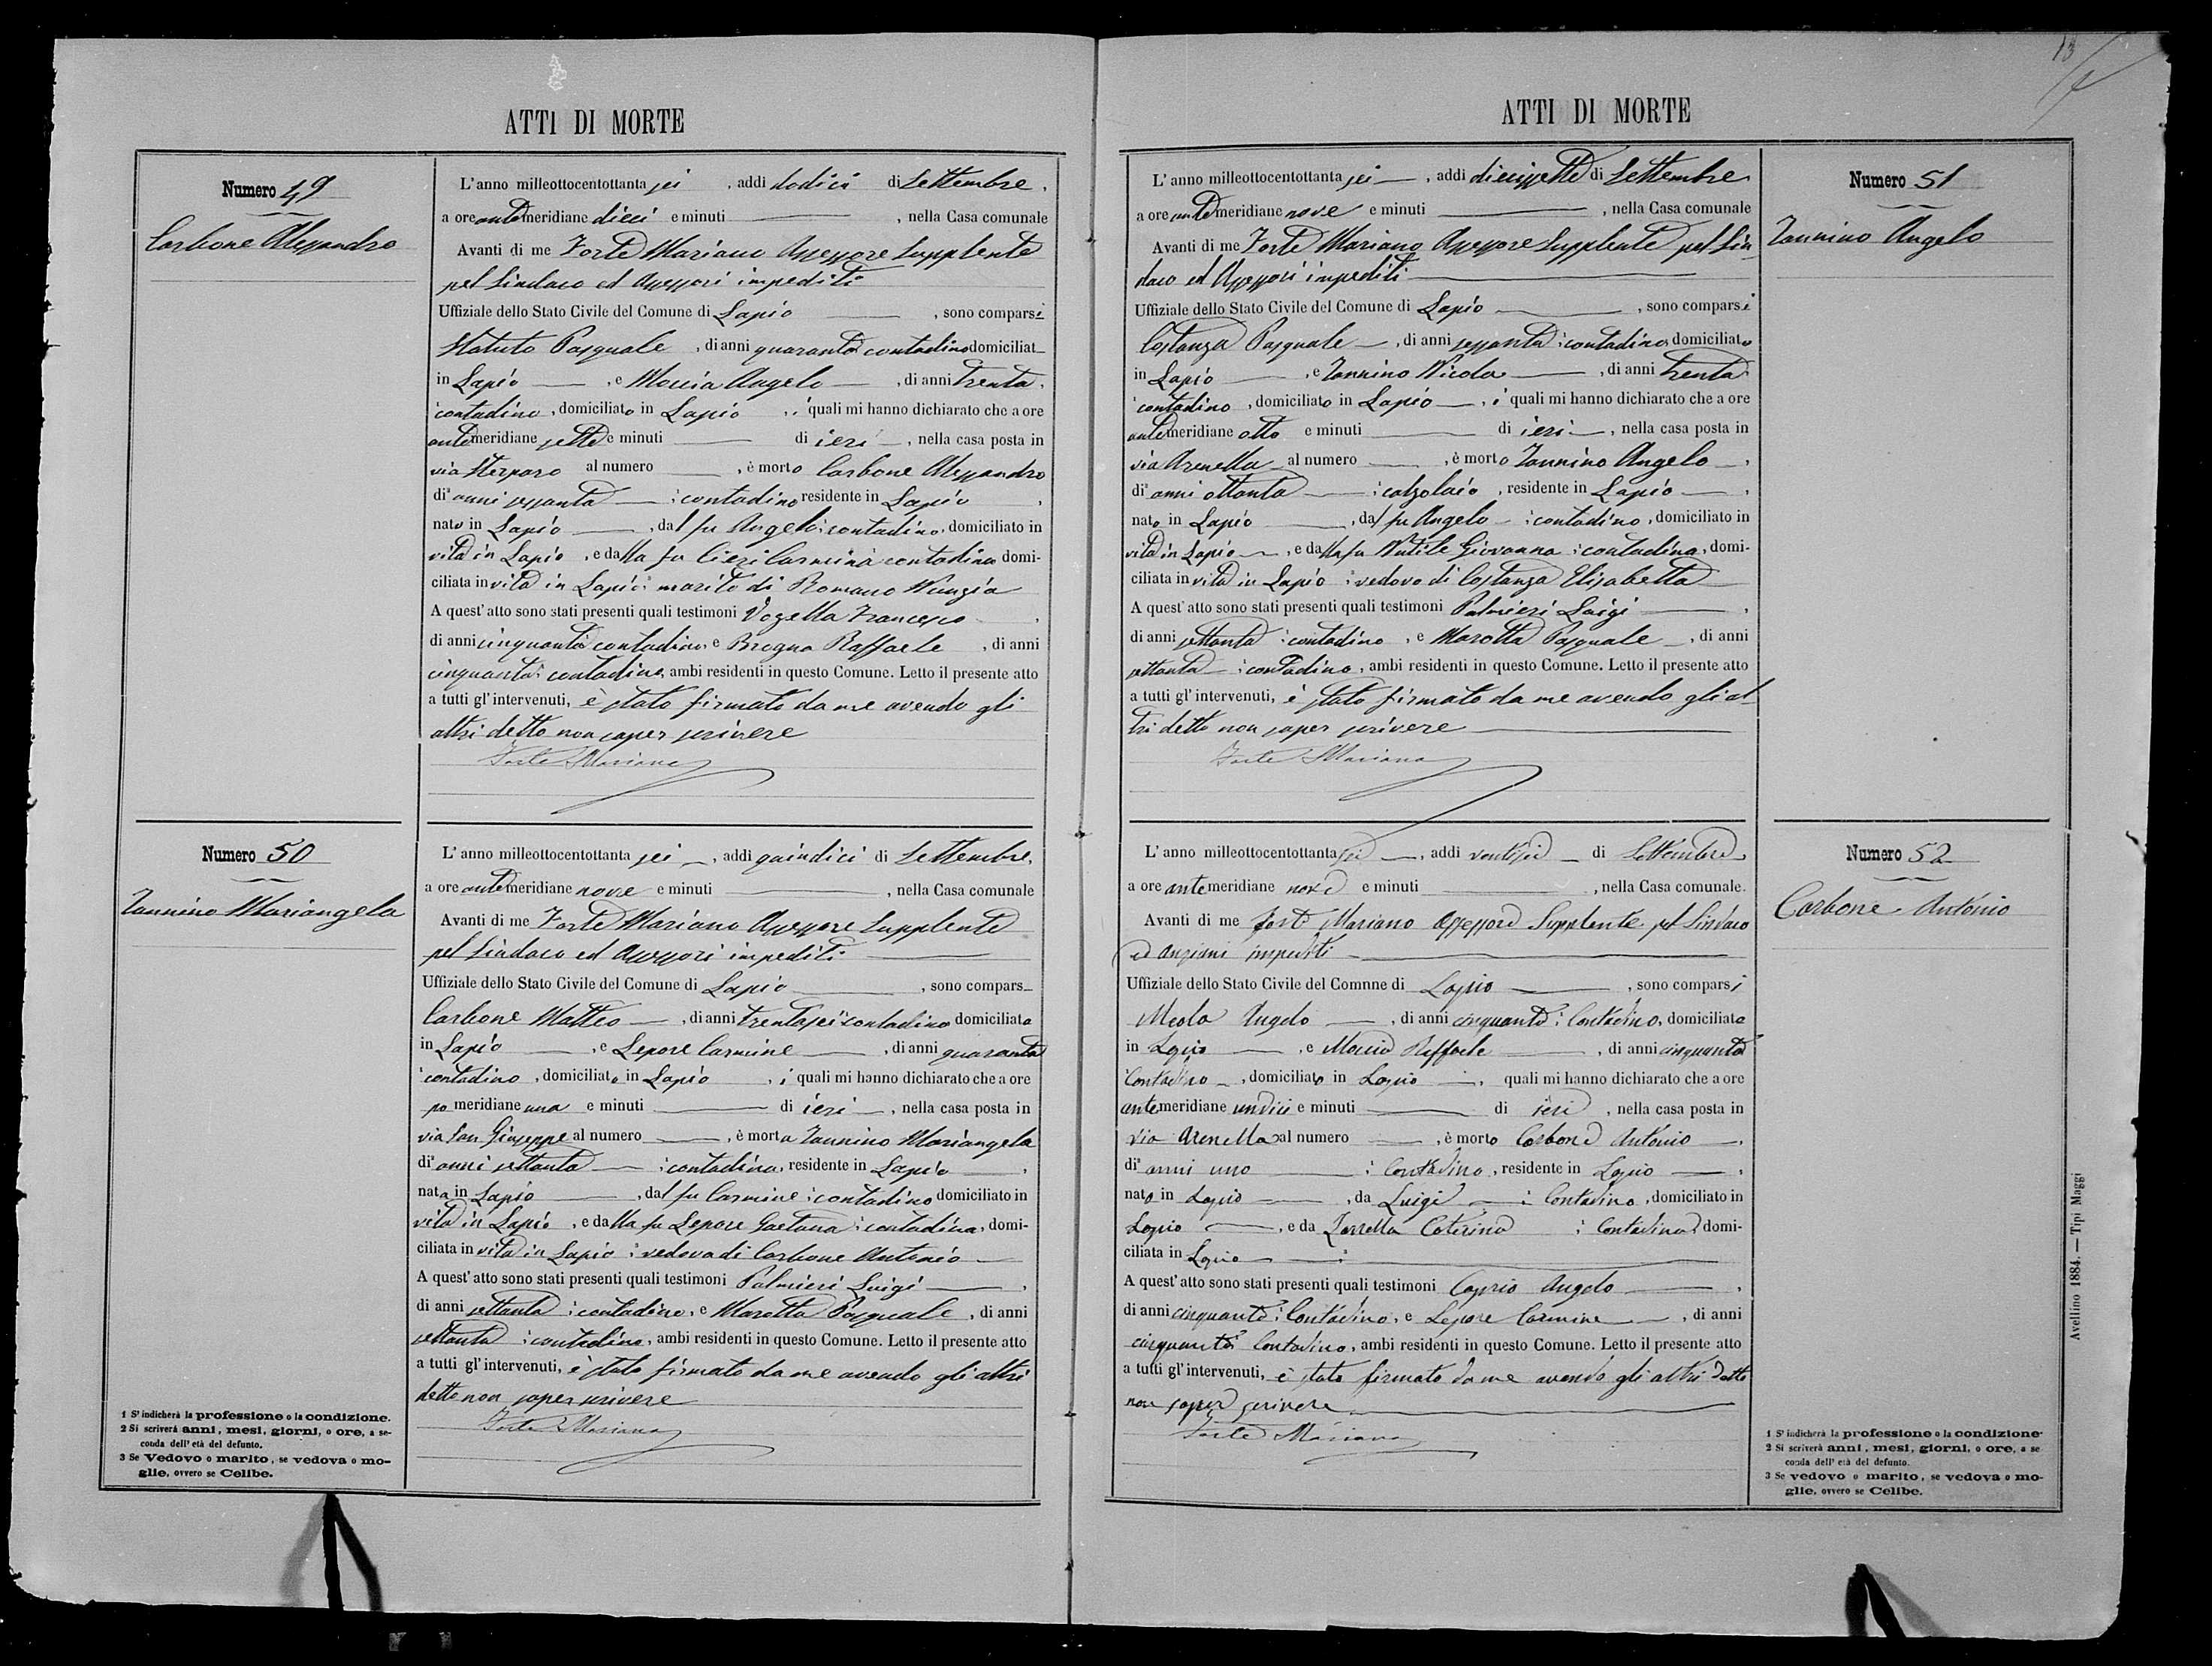 ATTI DI MORTE
Numero 49
Carbone Alessandro
L'anno milleottocentottanta sei, addi dodici di Settembre,
a ore antemeridiane dieci e minuti, nella Casa comunale
Avanti di me Forte Mariano Assessore Supplente
pel Sindaco ed Assessori impediti
Uffiziale dello Stato Civile del Comune di Lapio, sono comparsi
Statuto Pasquale, di anni quaranta contadino domiciliat
in Lapio, e Moccia Angelo, di anni trenta,
contadino, domiciliato in Lapio, i quali mi hanno dichiarato che a ore
antemeridiane sette e minuti di ieri, nella casa posta in
via Sterparo al numero, è morto Carbone Alessandro
di anni sessanta contadino residente in Lapio,
nato in Lapio, dal fu Angelo contadino, domiciliato in
vita in Lapio, e dalla fu Cieri Carmina contadina domi-
ciliata in vita in Lapio marito di Romano Nunzia
A quest'atto sono stati presenti quali testimoni Vozella Francesco,
di anni cinquanta contadino e Brogna Raffaele, di anni
cinquanta contadino, ambi residenti in questo Comune. Letto il presente atto
a tutti gl'intervenuti, è stato firmato da me avendo gli
altri detto non saper scrivere
Forte Mariano
Numero 50
Iannino Mariangela
L'anno milleottocentottanta sei, addi quindici di Settembre,
a ore antemeridiane nove e minuti, nella Casa comunale
Avanti di me Forte Mariano Assessore Supplente
pel Sindaco ed Assessori impediti
Uffiziale dello Stato Civile del Comune di Lapio, sono compars
Carbone Matteo, di anni trentasei contadino domiciliato
in Lapio, e Lepore Carmine, di anni quaranta
contadino, domiciliato in Lapio, i quali mi hanno dichiarato che a ore
pomeridiane una e minuti di ieri, nella casa posta in
via San Giuseppe al numero, è morta Iannino Mariangela
di anni settanta contadina, residente in Lapio,
nata in Lapio, dal fu Carmine contadino domiciliato in
vita in Lapio, e dalla fu Lepore Gaetana contadina, domi-
ciliata in vita in Lapio vedova di Carbone Antonio
A quest'atto sono stati presenti quali testimoni Palmieri Luigi,
di anni settanta contadino, e Marotta Pasquale, di anni
settanta contadino, ambi residenti in questo Comune. Letto il presente atto
a tutti gl'intervenuti, è stato firmato da me avendo gli altri
detto non saper scrivere
Forte Mariano
1 S'indicherà la professione o la condizione.
2 Si scriverà anni, mesi, giorni, o ore, a se-
conda dell'età del defunto.
3 Se Vedovo o marito, se vedova o mo-
glie, ovvero se Celibe.
13
ATTI DI MORTE
L'anno milleottocentottanta sei, addi diecissette di Settembre
a ore antemeridiane nove e minuti, nella Casa comunale
Avanti di me Forte Mariano Assessore Supplente pel Sin-
daco ed Assessori impediti
Uffiziale dello Stato Civile del Comune di Lapio, sono comparsi
Costanza Pasquale, di anni sessanta contadino, domiciliato
in Lapio, e Iannino Nicola, di anni trenta
contadino, domiciliato in Lapio, i quali mi hanno dichiarato che a ore
antemeridiane otto e minuti di ieri, nella casa posta in
via Arenella al numero, è morto Iannino Angelo,
di anni ottanta calzolaio, residente in Lapio,
nato in Lapio, dal fu Angelo contadino, domiciliato in
vita in Lapio, e dalla fu Giovanna contadina, domi-
ciliata in vita in Lapio vedovo di Costanza Elisabetta
A quest'atto sono stati presenti quali testimoni Palmieri Luigi,
di anni settanta contadino, e Marotta Pasquale, di anni
settanta contadino, ambi residenti in questo Comune. Letto il presente atto
a tutti gl'intervenuti, è stato firmato da me avendo gli al-
tri detto non saper scrivere
Forte Mariano
Numero 51
Iannino Angelo
L'anno milleottocentottanta sei, addi ventisei di Settembre
a ore antemeridiane nove e minuti, nella Casa comunale.
Avanti di me Forte Mariano Assessore Supplente pel Sindaco
ed anziani impediti
Uffiziale dello Stato Civile del Comnne di Lapio, sono comparsi
Meola Angelo, di anni cinquanta Contadino, domiciliato
in Lapio, e Moccia Raffaele, di anni cinquanta
Contadino, domiciliato in Lapio, quali mi hanno dichiarato che a ore
antemeridiane undici e minuti di ieri, nella casa posta in
Via Arenella al numero, è morto Carbone Antonio,
di anni uno Contadino, residente in Lapio,
nato in Lapio, da Luigi Contadino, domiciliato in
Lapio, e da Zarrella Caterina Contadina, domi-
ciliata in Lapio
A quest'atto sono stati presenti quali testimoni Caprio Angelo,
di anni cinquanta Contadino, e Lepore Carmine, di anni
cinquanta Contadino, ambi residenti in questo Comune. Letto il presente atto
a tutti gl'intervenuti, è stato firmato da me avendo gli altri detto
non saper scrivere
Forte Mariano
Numero 52
Carbone Antonio
1 S'indicherà la professione o la condizione
2 Si scriverà anni, mesi, giorni, o ore, a se
conda dell'età del defunto.
3 Se vedovo o marito, se vedova o mo-
glie, ovvero se Celibe.
Avellino 1884. — Tipi Maggi